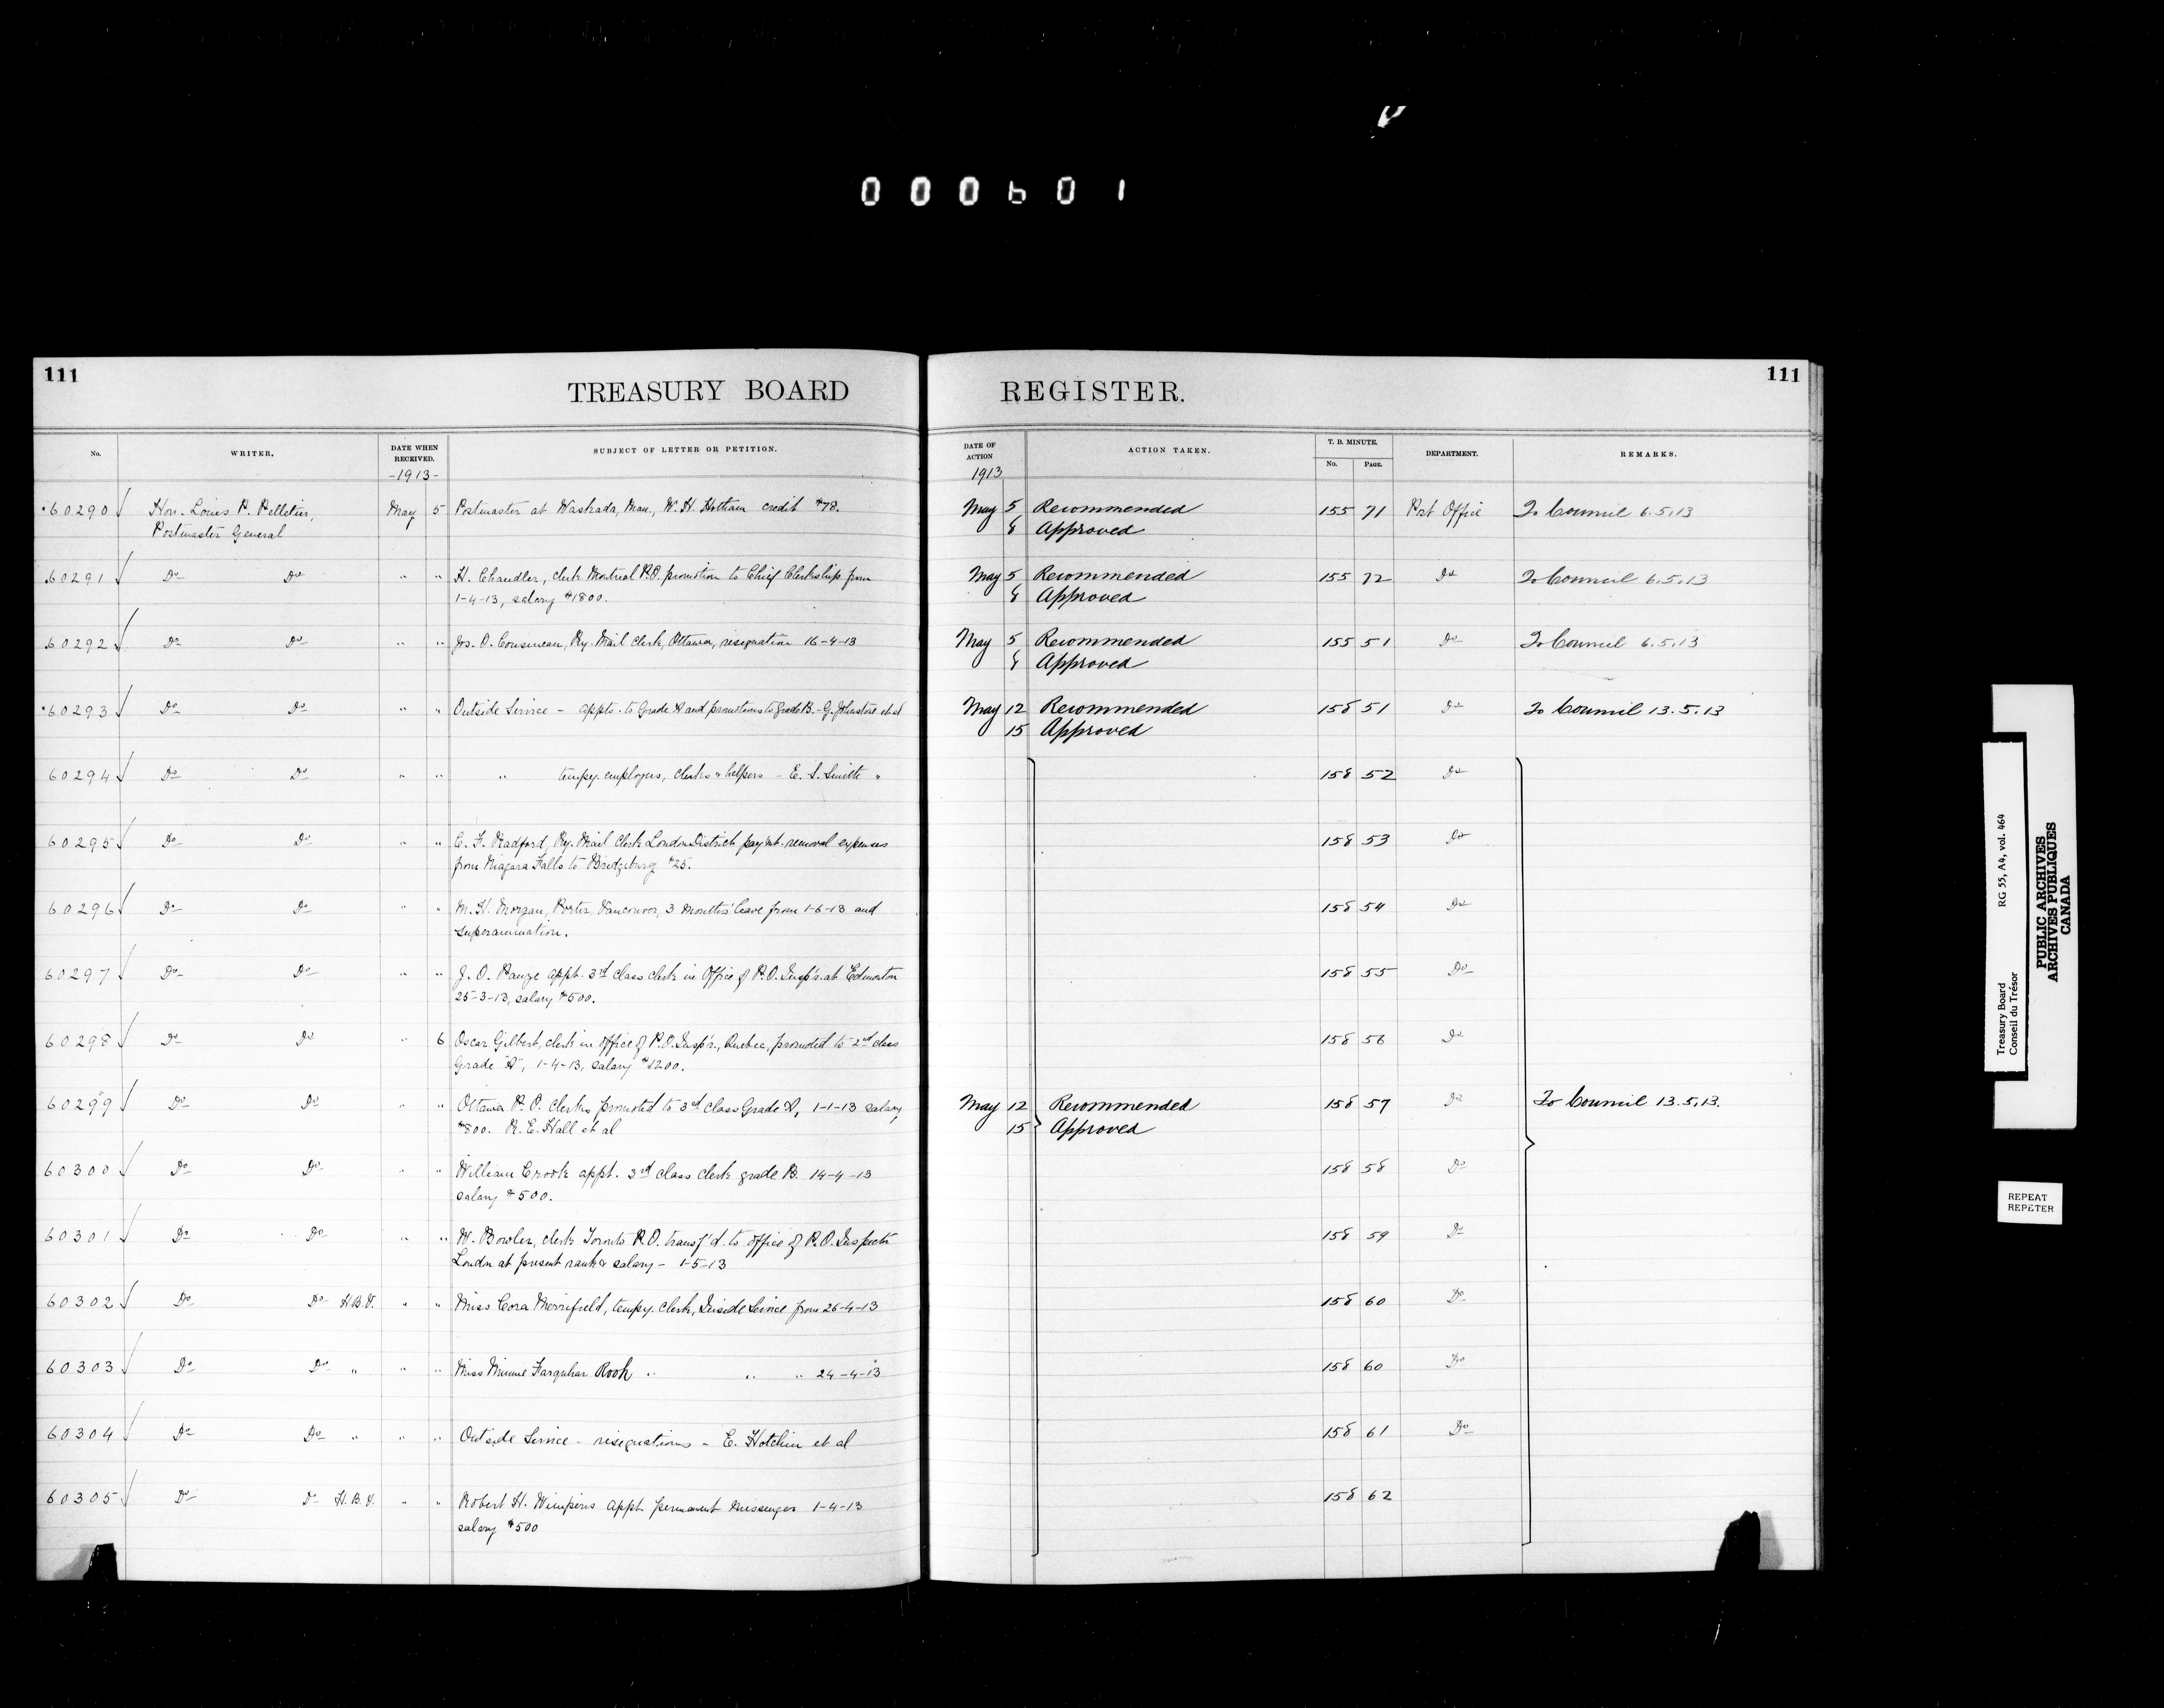 000601
111
TREASURY BOARD REGISTER.
111
No. WRITER. DATE WHEN RECEIVED. SUBJECT OF LETTER OR PETITION. DATE OF ACTION ACTION TAKEN. T. B. MINUTE. No. PAGE. DEPARTMENT. REMARKS.
-1913- 1913
60290 Hon. Louis P. Pelletier, May 5 Postmaster at Waskada, Man., W. H. Hotham credit $78. May 5 Recommended 155 71 Post Office To Council 6.5.13
Postmaster General 8 Approved
60291 Do Do " " H. Chandler, clerk Montreal P.O. promotion to Chief Clerkship from May 5 Recommended 155 72 Do To Council 6.5.13
1-4-13, salary $1800. 8 Approved
60292 Do Do " " Jos. O. Cousineau, Ry. Mail Clerk, Ottawa, resignation 16-4-13 May 5 Recommended 155 51 Do To Council 6.5.13
8 Approved
60293 Do Do " " Outside Service - appts. to Grade A and promotions to Grade B. - G. Johnstone et al May 12 Recommended 158 51 Do To Council 13.5.13
15 Approved
60294 Do Do " " " tempy. employees, clerks & helpers - E. S. Smith " 158 52 Do
60295 Do Do " " C. F. Radford, Ry. Mail Clerk London District pay'mt. removal expenses 158 53 Do
from Niagara Falls to Bridgeburg $25.
60296 Do Do " " M. H. Morgan, Porter, Vancouver, 3 months' leave from 1-6-13 and 158 54 Do
superannuation.
60297 Do Do " " J. O. appt. 3rd class clerk in Office of P.O. Insp'r. at Edmonton 158 55 Do
25-3-13, salary $500.
60298 Do Do " 6 Oscar Gilbert, clerk in office of P.O. Insp'r., Quebec, promoted to 2nd class 158 56 Do
Grade "A", 1-4-13, salary $1200.
60299 Do Do " " Ottawa P.O. Clerks promoted to 3rd class Grade A, 1-1-13 salary May 12 Recommended 158 57 Do To Council 13.5.13.
$800. R. E. Hall et al 15 Approved
60300 Do Do " " William Crook appt. 3rd class clerk grade B. 14-4-13 158 58 Do
salary $500.
60301 Do Do " " W. Bowler, clerk Toronto P.O. transf'd. to office of P.O. Inspector 158 59 Do
London at present rank & salary - 1-5-13
60302 Do Do H.B.V. " " Miss Cora Merrifield, tempy. clerk, Inside Service from 26-4-13 158 60 Do
60303 Do Do " " " Miss Minnie Farquhar Rook " " " 24-4-13 158 60 Do
60304 Do Do " " " Outside Service - resignations - E. Hotchin et al 158 61 Do
60305 Do Do H.B.V. " " Robert H. Wimperis appt. permanent Messenger 1-4-13 158 62
salary $500
Treasury Board RG 55, A4, vol. 464
Conseil du Trésor
PUBLIC ARCHIVES
ARCHIVES PUBLIQUES
CANADA
REPEAT
REPETER